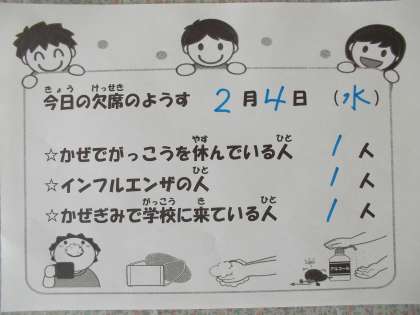 今日の欠席のようす 2月4日 （水）
☆かぜでがっこうを休んでいる人 1人
☆インフルエンザの人 1人
☆かぜぎみで学校に来ている人 1人
アルコール